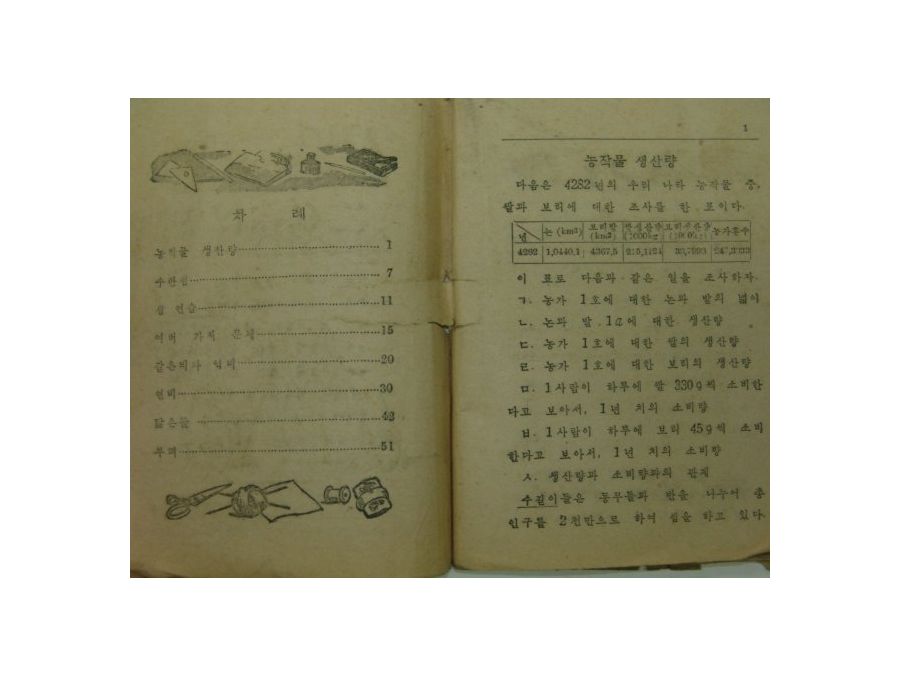 차 례
농작물 생산량 1
수판셈 7
셈 연습 11
여러 가지 문제 15
같은비와 역비 20
연비 30
닮은꼴 42
부피 51
1
농작물 생산량
다음은 4282년의 우리 나라 농작물 중,
쌀과 보리에 대한 조사를 한 표이다.
년 논(km²) 보리밭(km²) 농가호수
4282 1,0440,1 4367,5
이 표로 다음과 같은 일을 조사하자.
ㄱ. 농가 1호에 대한 논과 밭의 넓이
ㄴ. 논과 밭, 1a에 대한 생산량
ㄷ. 농가 1호에 대한 쌀의 생산량
ㄹ. 농가 1호에 대한 보리의 생산량
ㅁ. 1사람이 하루에 쌀 330g씩 소비한
다고 보아서, 1년 치의 소비량
ㅂ. 1사람이 하루에 보리 45g씩 소비
한다고 보아서, 1년 치의 소비량
ㅅ. 생산량과 소비량과의 관계
수길이들은 동무들과 반을 나누어 총
인구를 2천만으로 하여 셈을 하고 있다.